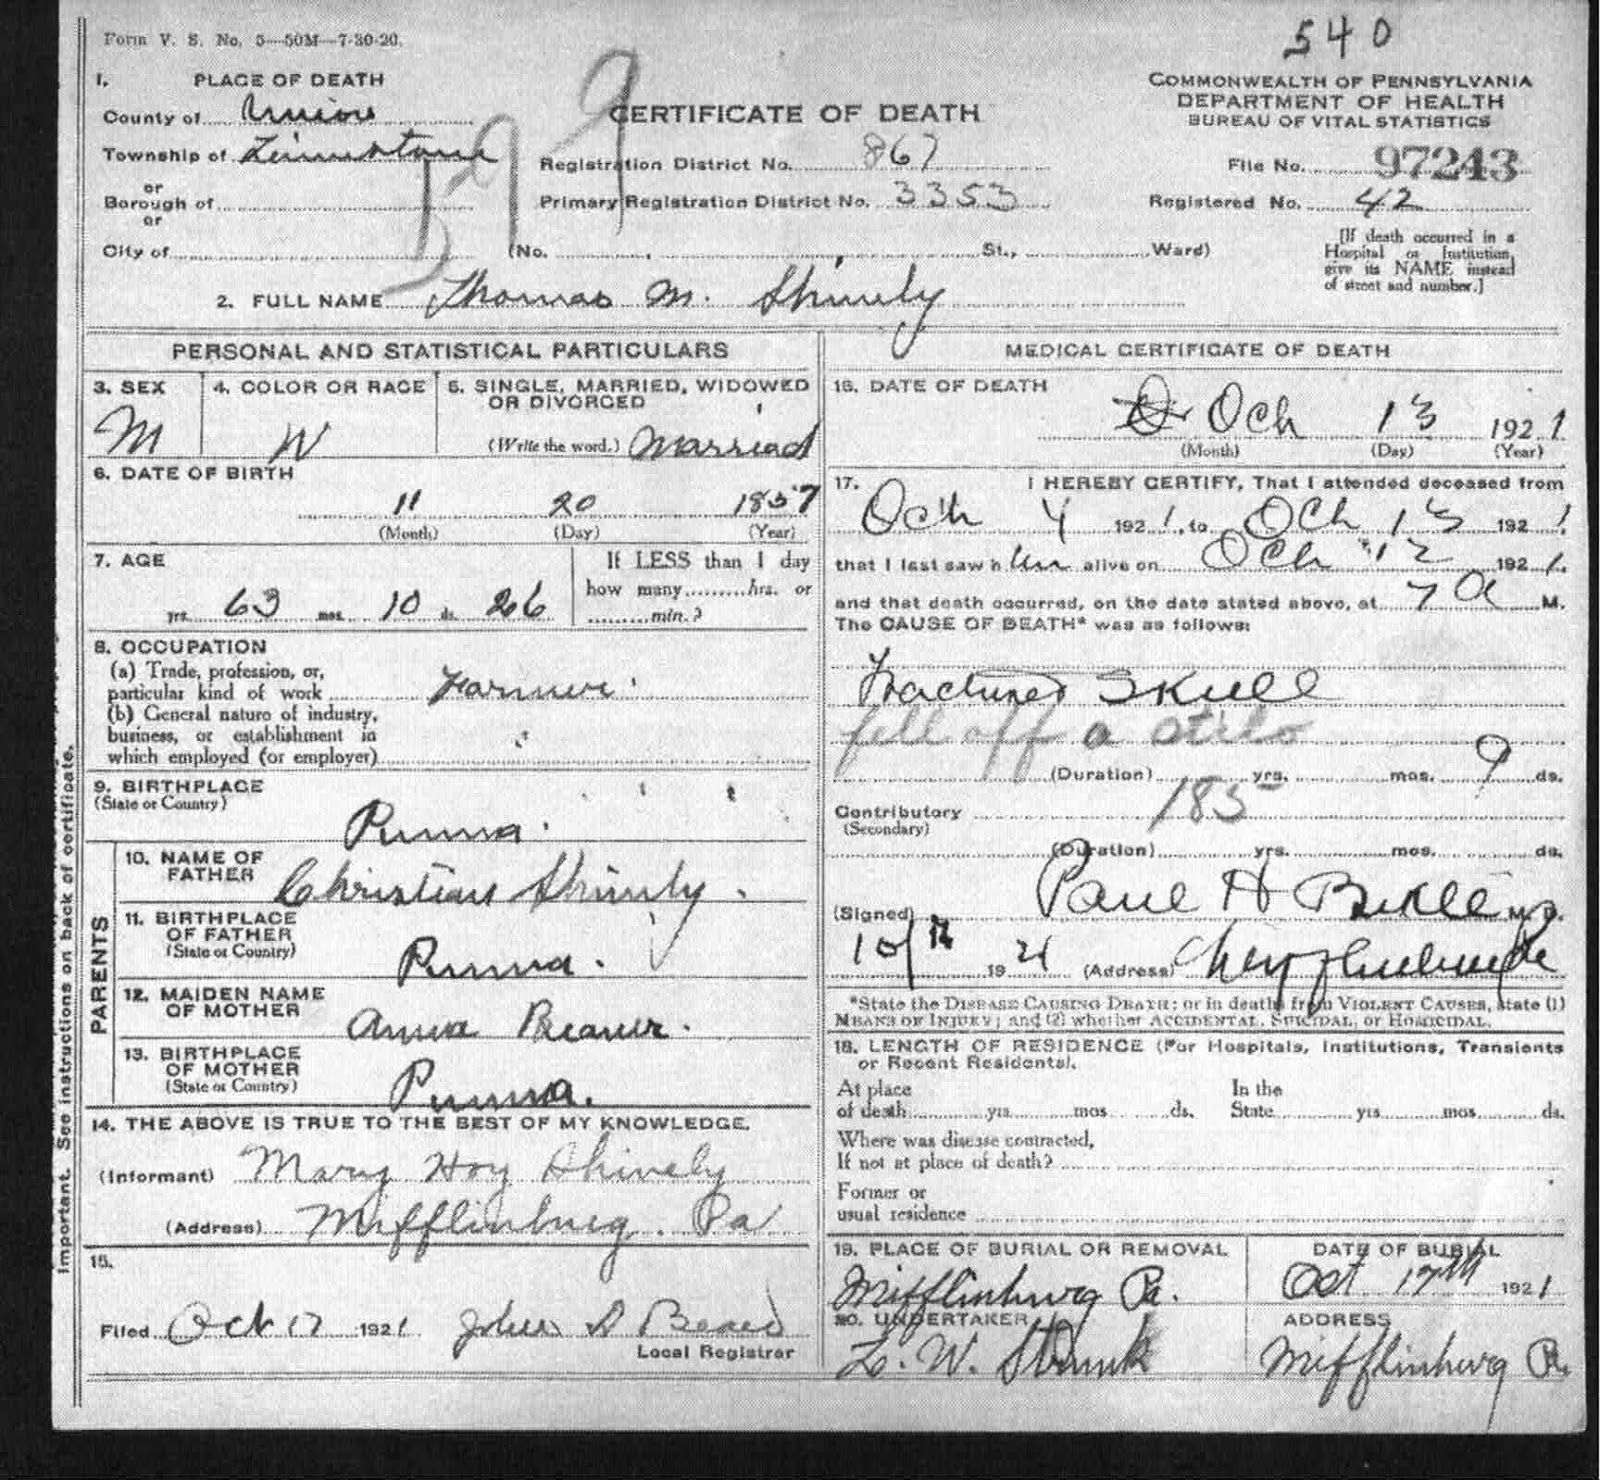 Form V. S. No. 5—50M—7-30-20.
540
1. PLACE OF DEATH
County of Union
Township of Limestone
or
Borough of
or
City of
CERTIFICATE OF DEATH
Registration District No. 867
Primary Registration District No. 3353
(No. , St., Ward)
COMMONWEALTH OF PENNSYLVANIA
DEPARTMENT OF HEALTH
BUREAU OF VITAL STATISTICS
File No. 97243
Registered No. 42
[If death occurred in a
Hospital or Institution,
give its NAME instead
of street and number.]
2. FULL NAME Thomas M. Shively
PERSONAL AND STATISTICAL PARTICULARS
3. SEX
M
4. COLOR OR RACE
W
5. SINGLE, MARRIED, WIDOWED
OR DIVORCED
(Write the word.) Married
6. DATE OF BIRTH
11 20 1857
(Month) (Day) (Year)
7. AGE
yrs. 63 mos. 10 ds. 26
If LESS than 1 day
how many hrs. or
min.?
8. OCCUPATION
(a) Trade, profession, or,
particular kind of work Farmer
(b) General nature of industry,
business, or establishment in
which employed (or employer)
9. BIRTHPLACE
(State or Country)
Penna.
PARENTS
10. NAME OF
FATHER Christian Shively.
11. BIRTHPLACE
OF FATHER
(State or Country) Penna.
12. MAIDEN NAME
OF MOTHER Anna Beaver.
13. BIRTHPLACE
OF MOTHER
(State or Country) Penna.
14. THE ABOVE IS TRUE TO THE BEST OF MY KNOWLEDGE.
(Informant) Mary Hoy Shively
(Address) Mifflinburg. Pa
15.
Filed Oct 17 1921 John D Beard
Local Registrar
MEDICAL CERTIFICATE OF DEATH
16. DATE OF DEATH
Och 13 1921
(Month) (Day) (Year)
17. I HEREBY CERTIFY, That I attended deceased from
Och 4 1921, to Och 13 1921
that I last saw him alive on Och 12 1921.
and that death occurred, on the date stated above, at 7 A M.
The CAUSE OF DEATH* was as follows:
Fractured Skull
fell off a
(Duration) yrs. mos. 9 ds.
Contributory 185
(Secondary)
(Duration) yrs. mos. ds.
(Signed) Paul H M. D.
19 21 (Address) Pa
*State the DISEASE CAUSING DEATH; or in deaths from VIOLENT CAUSES, state (1)
MEANS OF INJURY; and (2) whether ACCIDENTAL, SUICIDAL, or HOMICIDAL.
18. LENGTH OF RESIDENCE (For Hospitals, Institutions, Transients
or Recent Residents).
At place
of death yrs mos ds.
In the
State yrs mos ds.
Where was disease contracted,
If not at place of death?
Former or
usual residence
19. PLACE OF BURIAL OR REMOVAL
Mifflinburg Pa.
DATE OF BURIAL
Oct 17th 1921
20. UNDERTAKER
L. W. Strunk
ADDRESS
Mifflinburg Pa.
Important. See instructions on back of certificate.